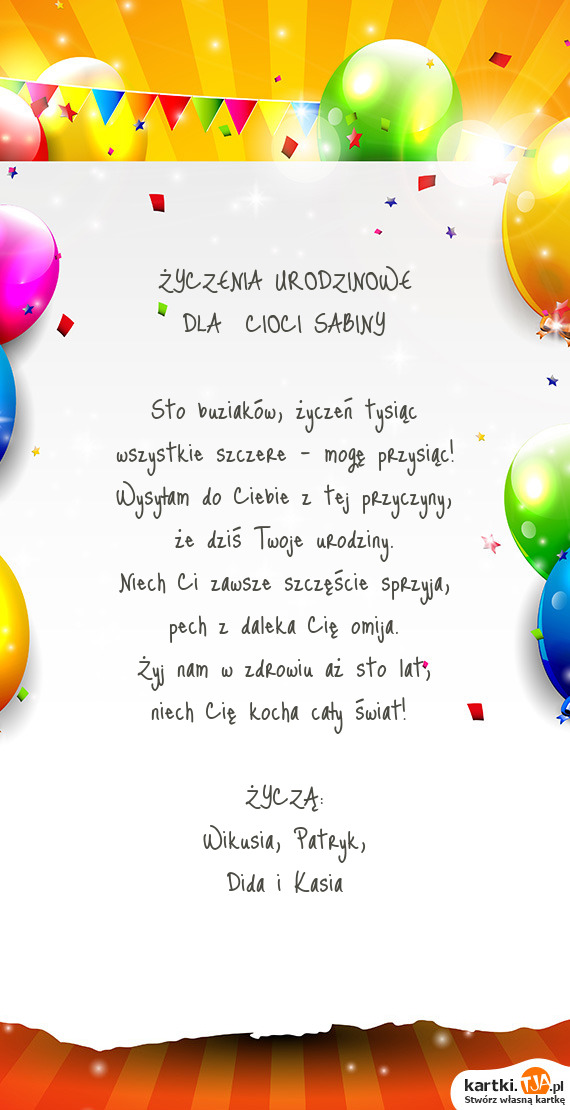 ŻYCZENIA URODZINOWE
DLA CIOCI SABINY
Sto buziaków, życzeń tysiąc
wszystkie szczere - mogę przysiąc!
Wysyłam do Ciebie z tej przyczyny,
że dziś Twoje urodziny.
Niech Ci zawsze szczęście sprzyja,
pech z daleka Cię omija.
Żyj nam w zdrowiu aż sto lat,
niech Cię kocha cały świat!
ŻYCZĄ:
Wikusia, Patryk,
Dida i Kasia
kartki.TJA.pl
Stwórz własną kartkę